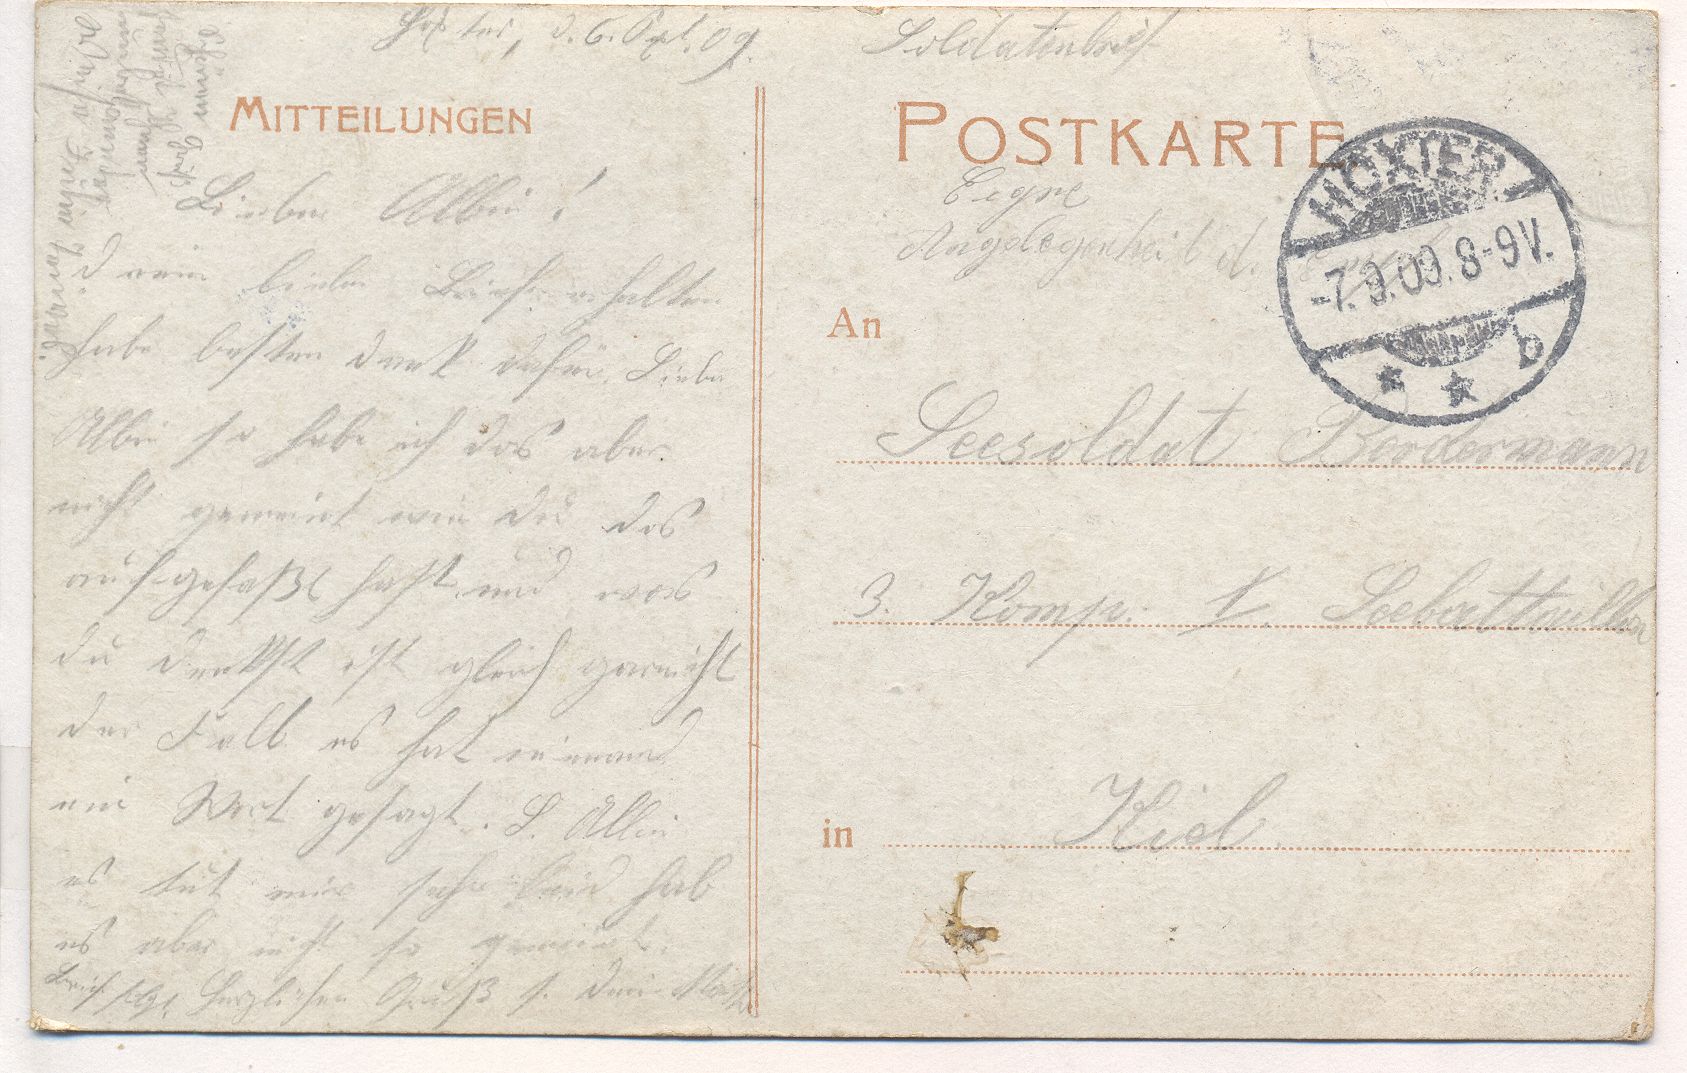 Höxter, d. 6. Sept. 09.
MITTEILUNGEN
Lieber Albin!
deinen lieben Brief erhalten
habe besten Dank dafür. Lieber
Albin so habe ich das aber
nicht gemeint wie du das
aufgefaßt hast und was
du denkst ist gleich garnicht
der Fall es hat niemand
ein Wort gesagt. L. Albin
es tut mir sehr Leid hab
es aber nicht so gemeint.
Brief folgt. Herzlichen Gruß s. dein
Soldatenbrief
POSTKARTE
Eigne
Angelegenheit d. Empf.
HÖXTER 1
-7.9.09.8-9V.
* * b
An
Seesoldat Bordermann
3. Komp. I. Seebattaillon
in Kiel.